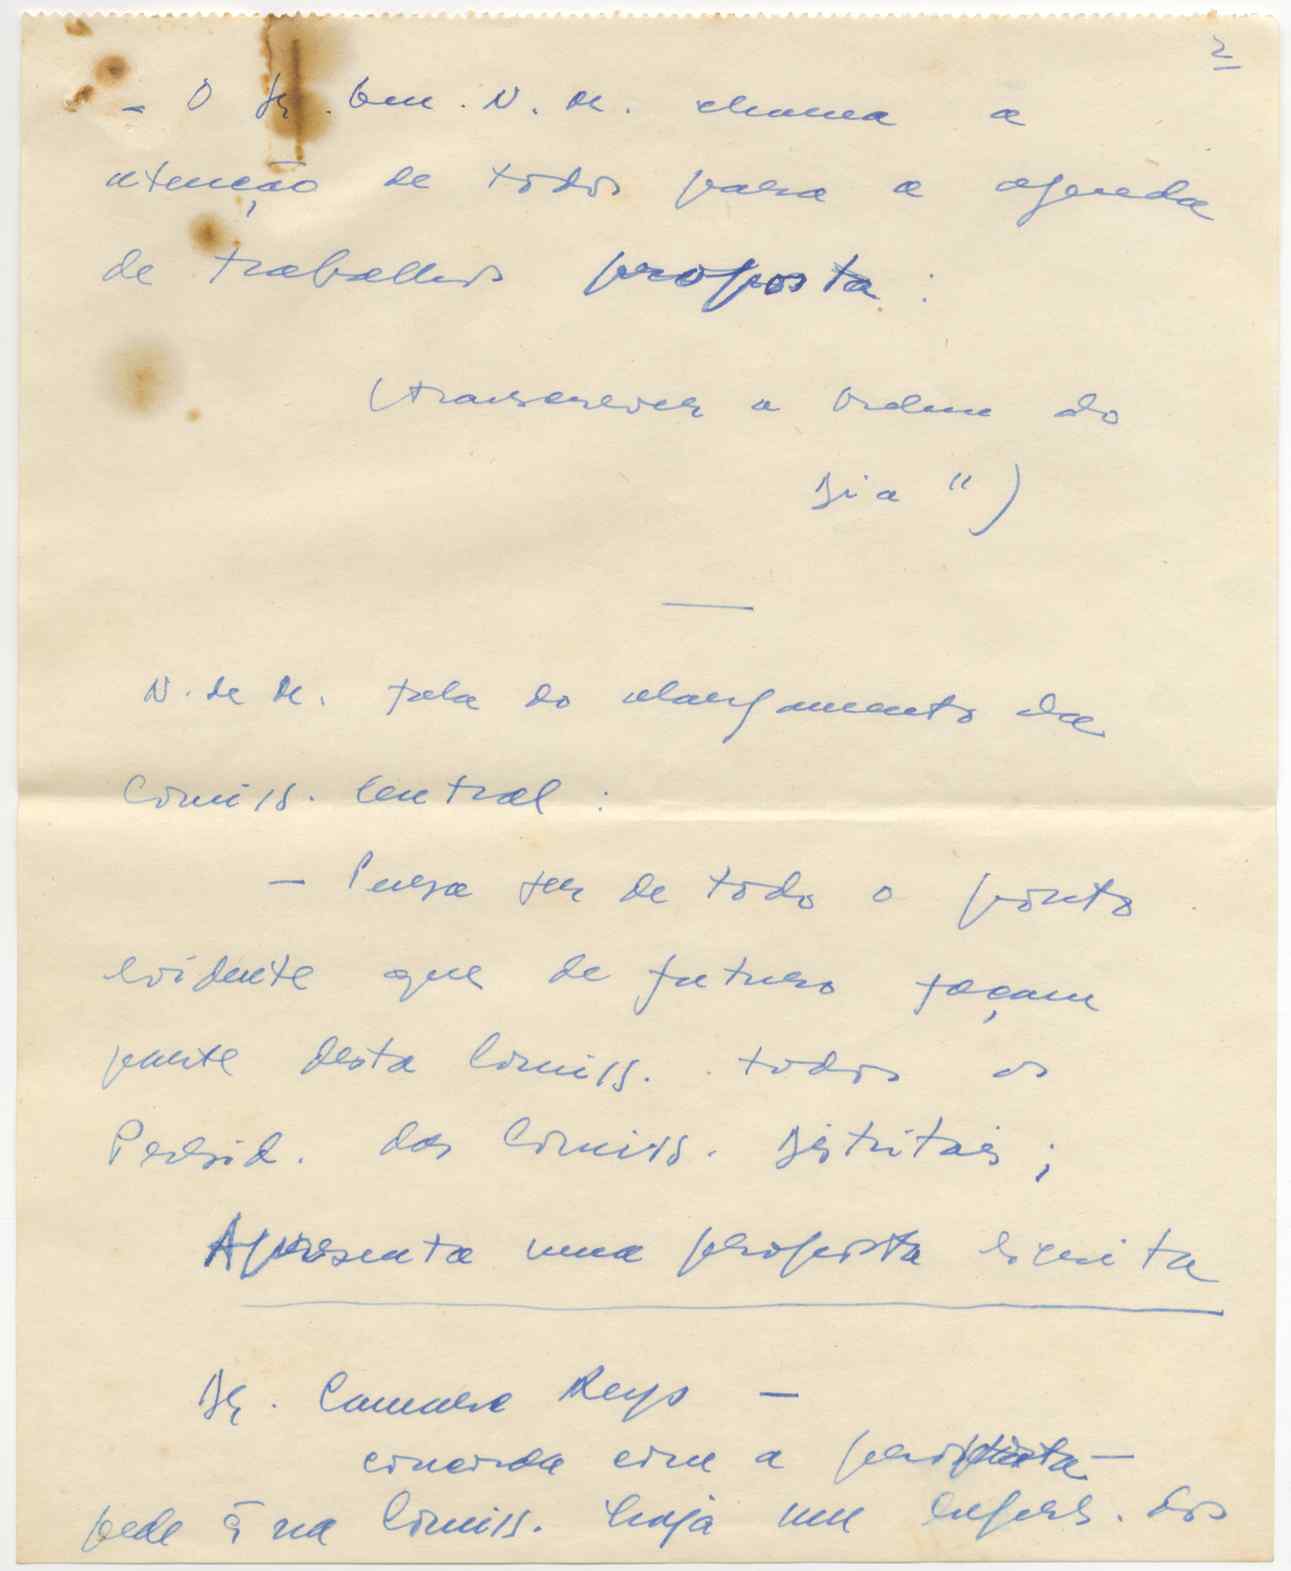 2
- O Sr. Gen. N. M. chama a
atenção de todos para a agenda
de trabalhos proposta :
(transcrever a Ordem do
Dia ")
N. de M. fala do alargamento da
Comiss. Central :
- Pensa ser de todo o ponto
evidente que de futuro façam
parte desta Comiss. todos os
Presid. das Comiss. Distritais ;
Apresenta uma proposta escrita
Dr. Camara Reys -
concorda com a proposta -
pede q̄ na Comiss. haja um repres. dos